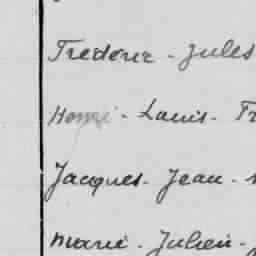 Frederic - Jules
Henri - Louis - Fr
Jacques - Jean -
Marie - Julien -